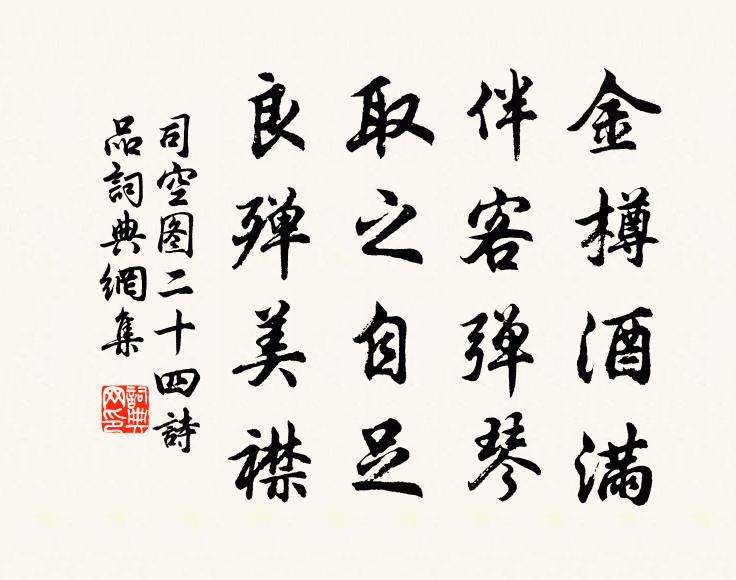 金樽酒滿
伴客弹琴
取之自足
良殫美襟
司空图二十四詩
品詞典網集
詞典
网印